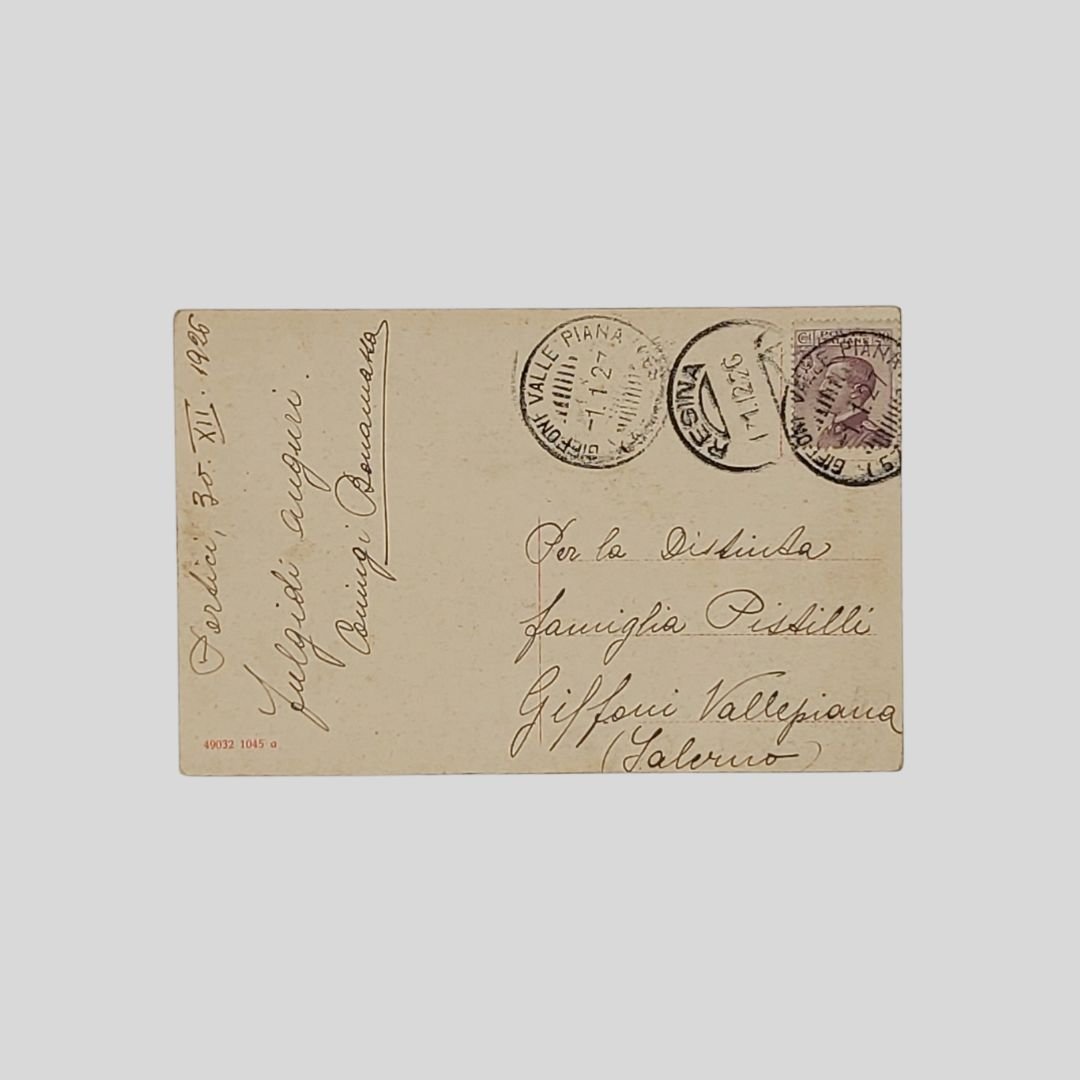 Portici, 30. XII. 1926
fulgidi auguri.
Bonamassa
GIFFONI VALLE PIANA
-1.1.27
RESINA
12.26
GIFFONI VALLE PIANA
Per la Distinta
famiglia Pistilli
Giffoni Vallepiana
(Salerno)
49032 1045 a